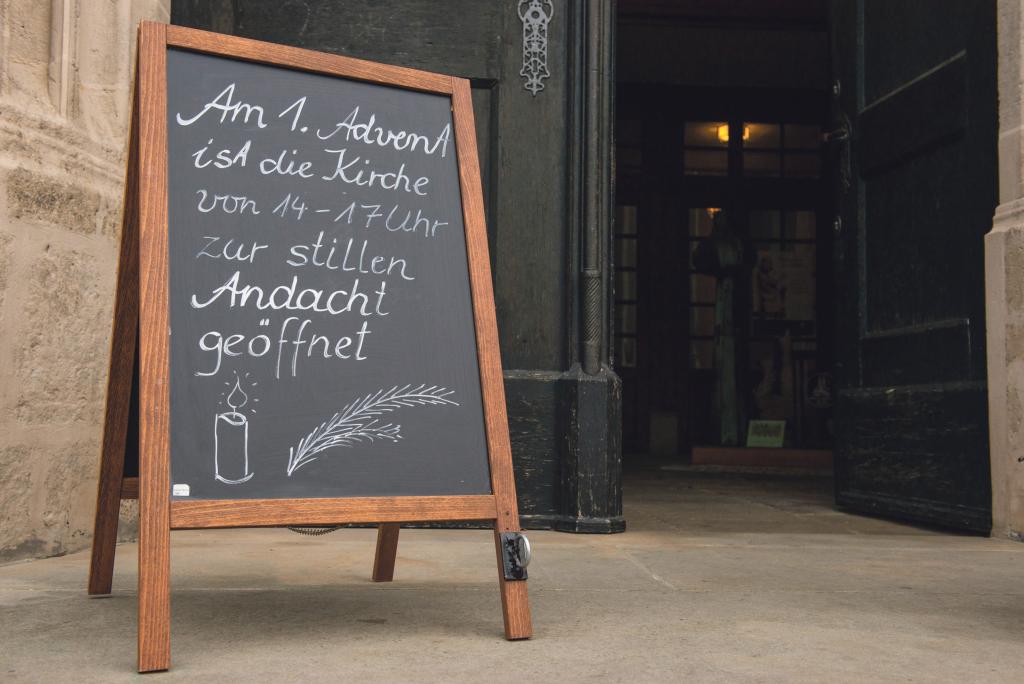 Am 1. Advent
ist die Kirche
von 14-17 Uhr
zur stillen
Andacht
geöffnet